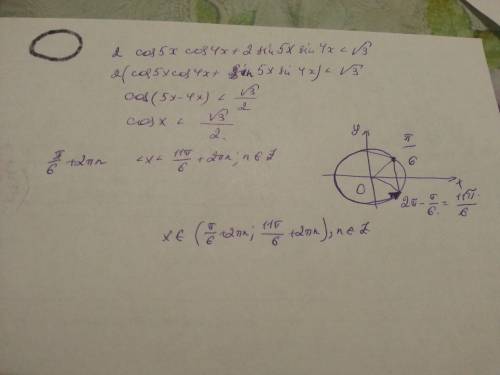 2 cos5x cos4x + 2 sin5x sin4x < √3
2(cos5x cos4x + sin5x sin4x) < √3
cos(5x-4x) < √3/2
cosx < √3/2
π/6 + 2πn < x < 11π/6 + 2πn; n ∈ Z
y
π/6
O
x
2π - π/6 = 11π/6
x ∈ (π/6 + 2πn; 11π/6 + 2πn), n ∈ Z